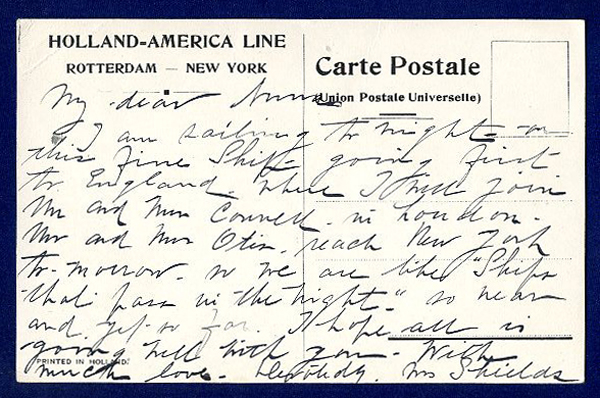 HOLLAND-AMERICA LINE
ROTTERDAM — NEW YORK
Carte Postale
(Union Postale Universelle)
My dear
I am sailing to-night - on
this fine Ship - going first
to England. where I will join
Mr and Mrs Connell - in London -
Mr and Mrs Otis. reach New York
to-morrow. so we are like "Ships
that pass in the night" so near
and yet so far. I hope all is
going well with you - With
much love - Mrs Shields
PRINTED IN HOLLAND.